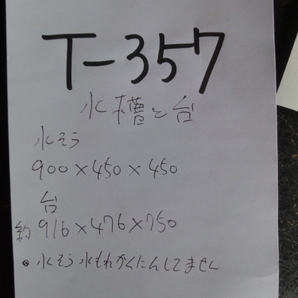 T-357
水槽と台
水そう
900×450×450
台
約 916×476×750
水そう水もれかくにんしてません